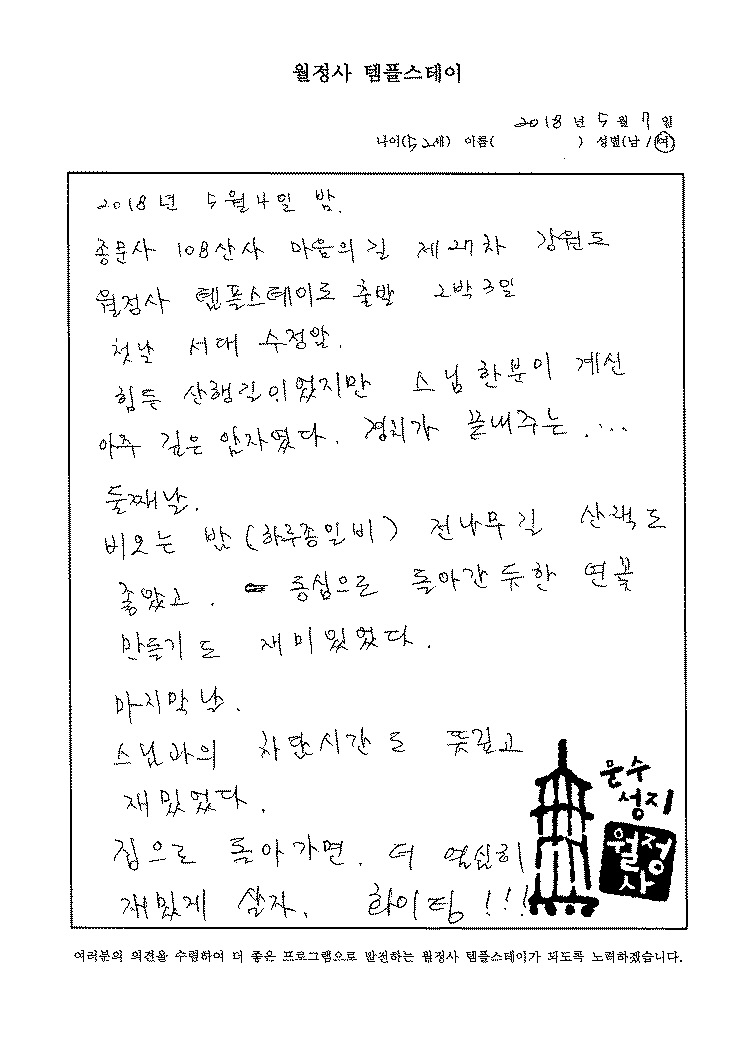 월정사 템플스테이
2018 년 5 월 7 일
나이(52세) 이름( ) 성별(남 / 여)
2018년 5월 4일 밤.
종문사 108산사 마음의 길 제27차 강원도
월정사 템플스테이로 출발 2박 3일
첫날 서대 수정암.
힘든 산행길이었지만 스님 한분이 계신
아주 깊은 암자였다. 경치가 끝내주는....
둘째날.
비오는 밤 (하루종일비) 전나무길 산책도
좋았고. 동심으로 돌아간듯한 연꽃
만들기도 재미있었다.
마지막 날.
스님과의 차담시간도 뜻깊고
재밌었다.
집으로 돌아가면. 더 열심히
재밌게 살자. 화이팅!!!
문수
성지
월정
사
여러분의 의견을 수렴하여 더 좋은 프로그램으로 발전하는 월정사 템플스테이가 되도록 노력하겠습니다.